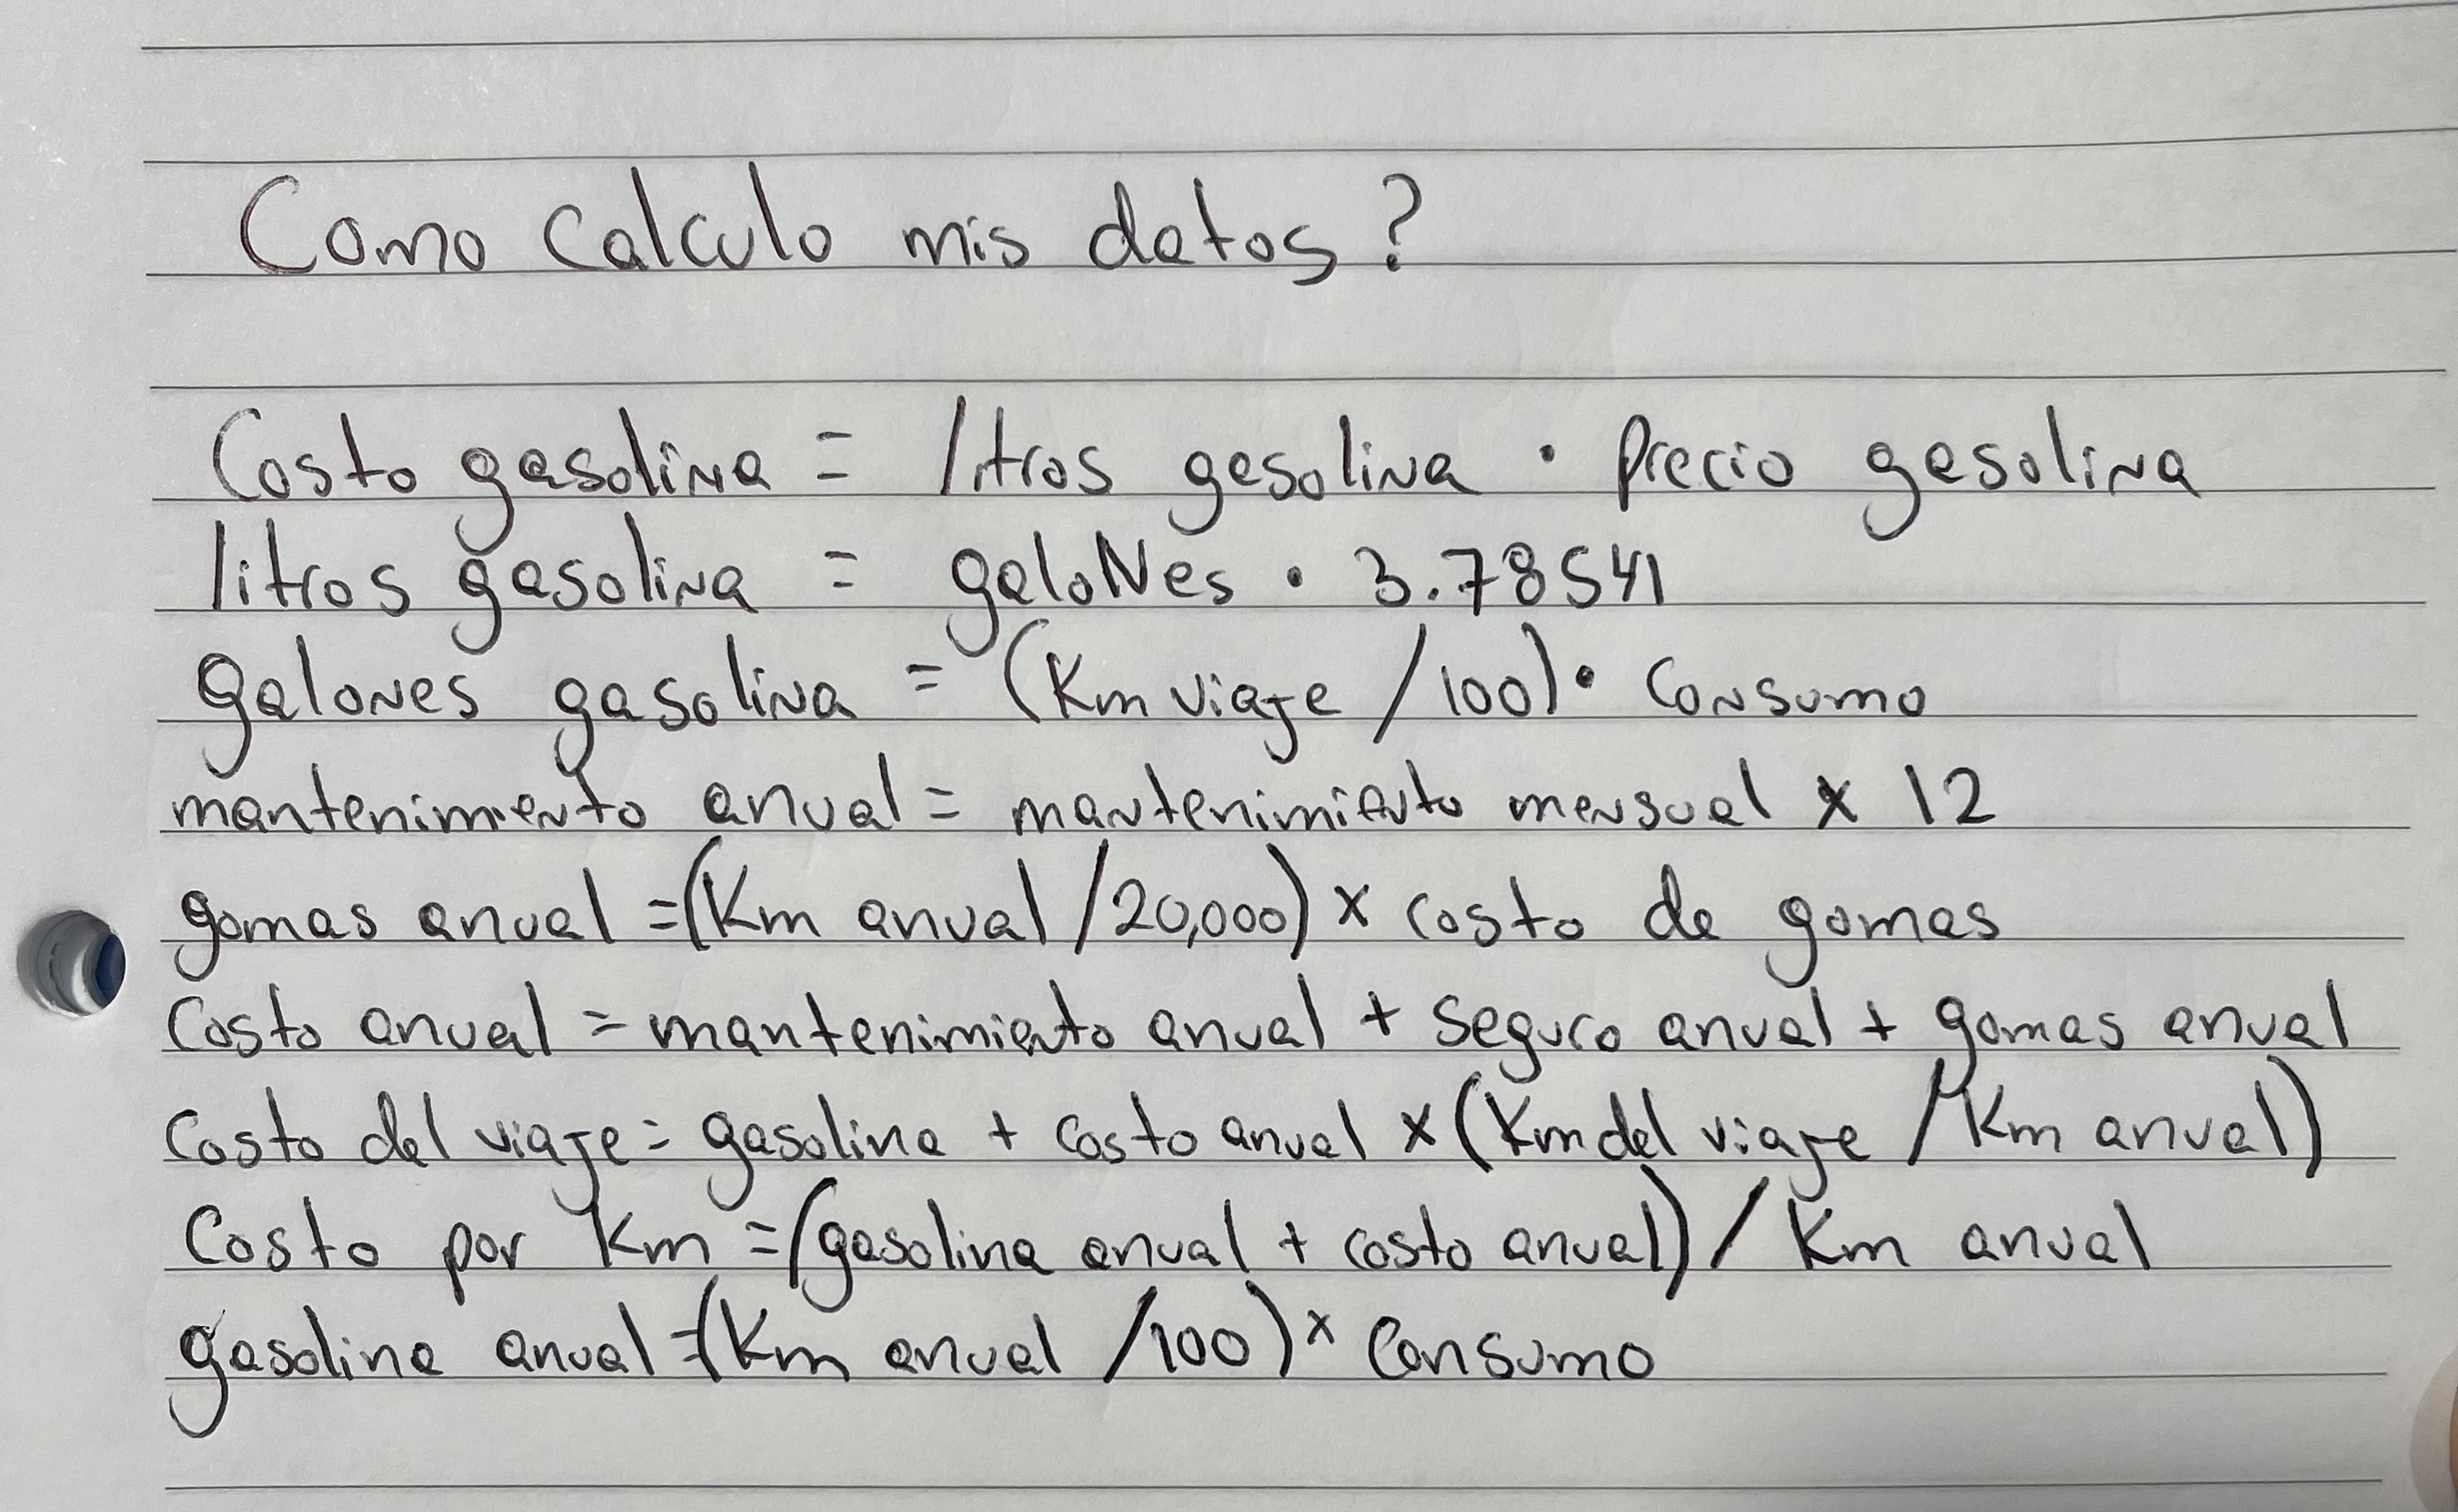 Como Calculo mis datos?
Costo gasolina = litros gasolina · Precio gasolina
litros gasolina = galoNes · 3.78541
galones gasolina = (Km viaje /100) · Consumo
mantenimiento anual = mantenimiento mensual x 12
gomas anual = (Km anual /20,000) x costo de gomas
Costo anual = mantenimiento anual + seguro anual + gomas anual
Costo del viaje = gasolina + costo anual x (Km del viaje / Km anual)
Costo por Km = (gasolina anual + costo anual) / Km anual
gasolina anual = (Km anual /100) x Consumo